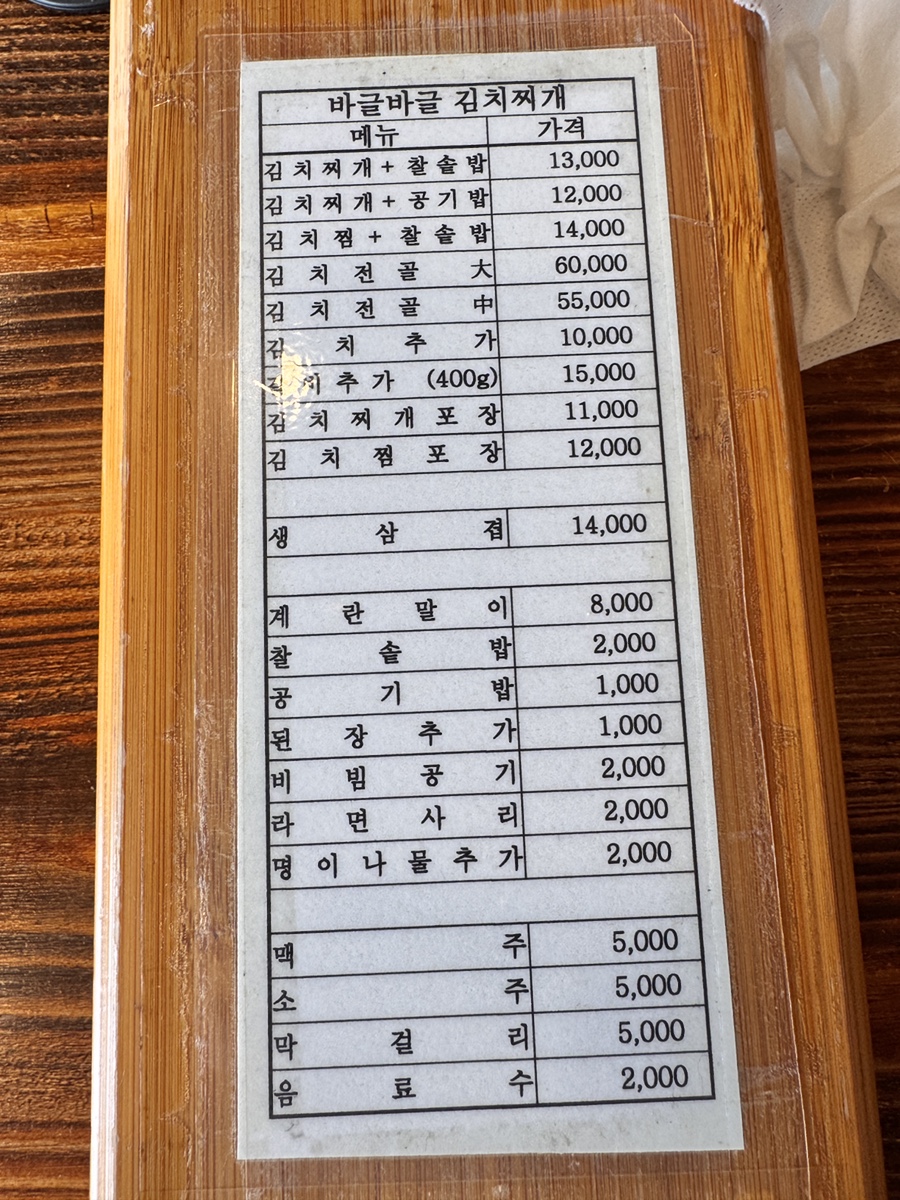 바글바글 김치찌개
메뉴 가격
김치찌개+찰솥밥 13,000
김치찌개+공기밥 12,000
김치찜+찰솥밥 14,000
김치전골 大 60,000
김치전골 中 55,000
김치추가 10,000
추가 (400g) 15,000
김치찌개포장 11,000
김치찜포장 12,000
생삼겹 14,000
계란말이 8,000
찰솥밥 2,000
공기밥 1,000
된장추가 1,000
비빔공기 2,000
라면사리 2,000
명이나물추가 2,000
맥주 5,000
소주 5,000
막걸리 5,000
음료수 2,000